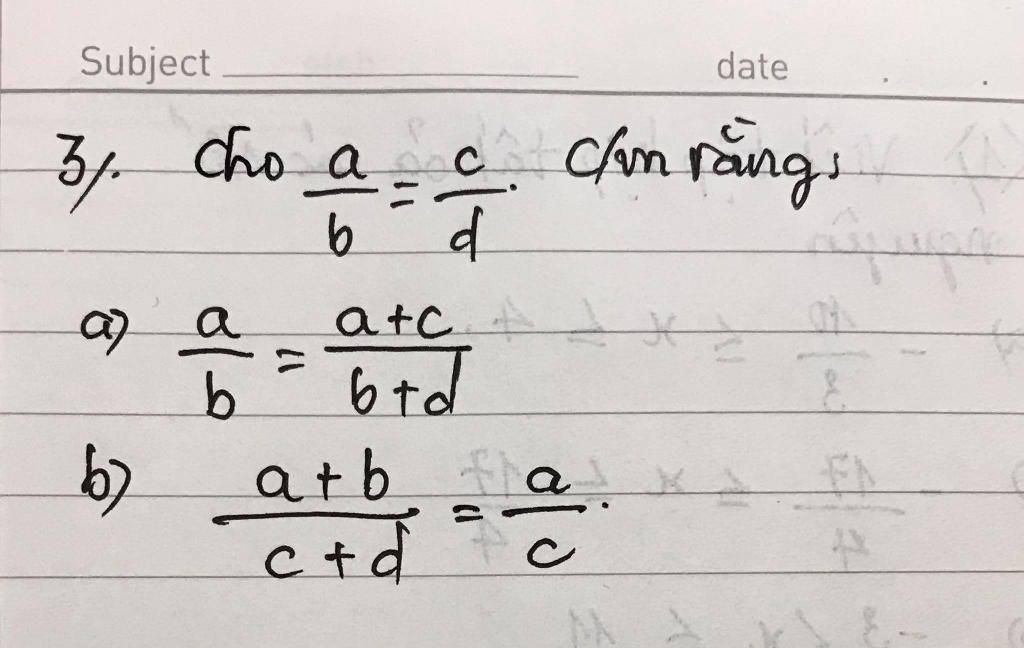 Subject date
3/. Cho a/b = c/d. C/m rằng:
a) a/b = a+c/b+d
b) a+b/c+d = a/c.